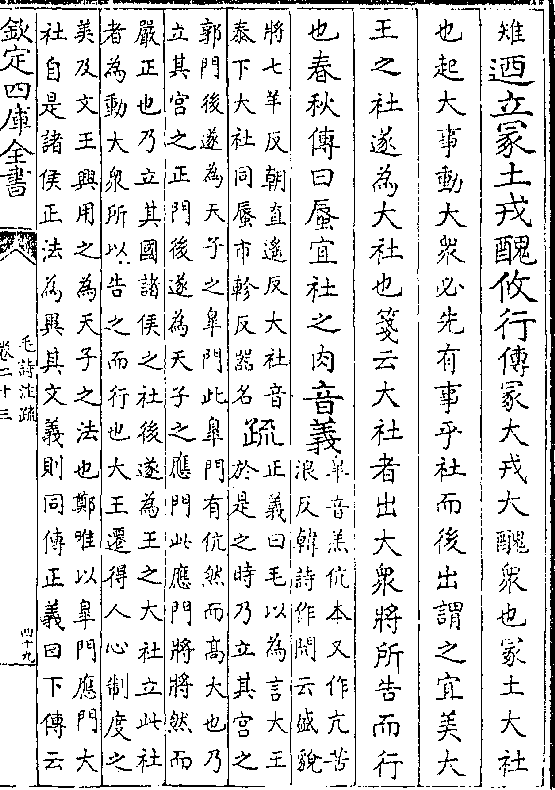 雉廼立冢土戎醜攸行傳冢大戎大醜衆也冢土大社
也起大事動大衆必先有事乎社而後出謂之宜美大
王之社遂為大社也箋云大社者出大衆將所告而行
也春秋傳曰蜃宜社之肉音義
臯音羔伉本又作亢苦
浪反韓詩作閌云盛貌
將七羊反朝直遥反大社音
泰下大社同蜃市軫反器名
疏
正義曰毛以為言大王
於是之時乃立其宫之
郭門後遂為天子之臯門此臯門有伉然而髙大也乃
立其宫之正門後遂為天子之應門此應門將將然而
嚴正也乃立其國諸侯之社後遂為王之大社立此社
者為動大衆所以告之而行也大王遷得人心制度之
美及文王興用之為天子之法也鄭唯以臯門應門大
社自是諸侯正法為異其文義則同傳正義曰下傳云
欽定四庫全書
毛詩注疏
卷二十三
四十九